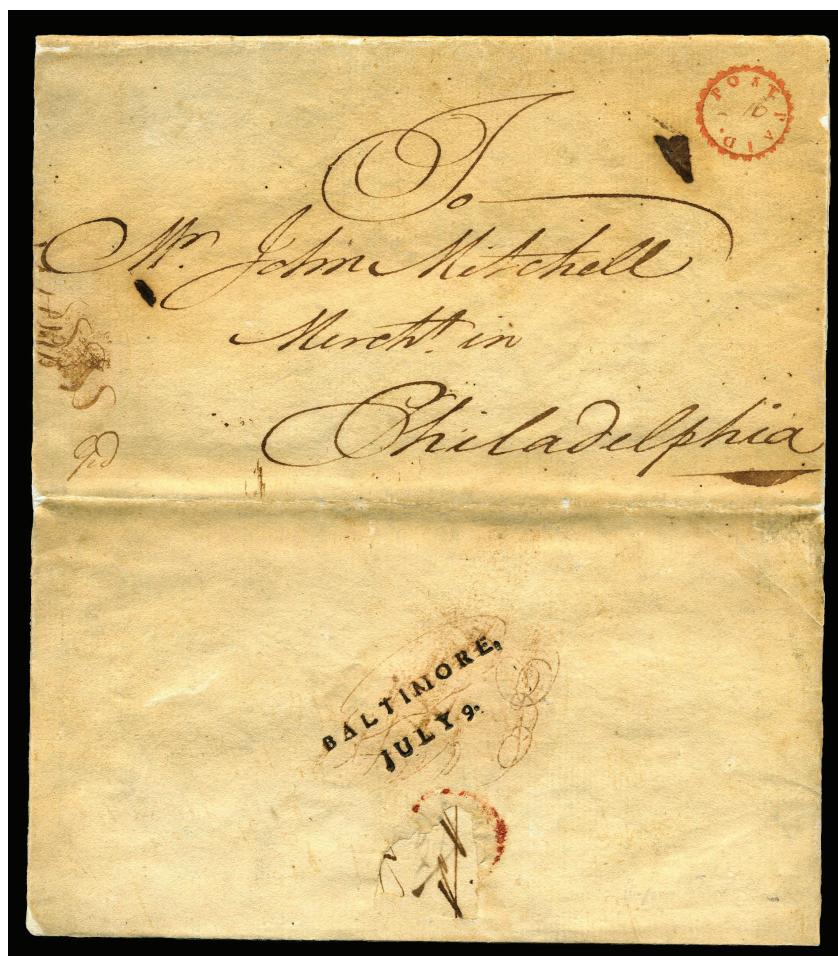 POST PAID.
To
Mr. John Mitchell
Mercht. in
Philadelphia
BALTIMORE,
JULY 9.